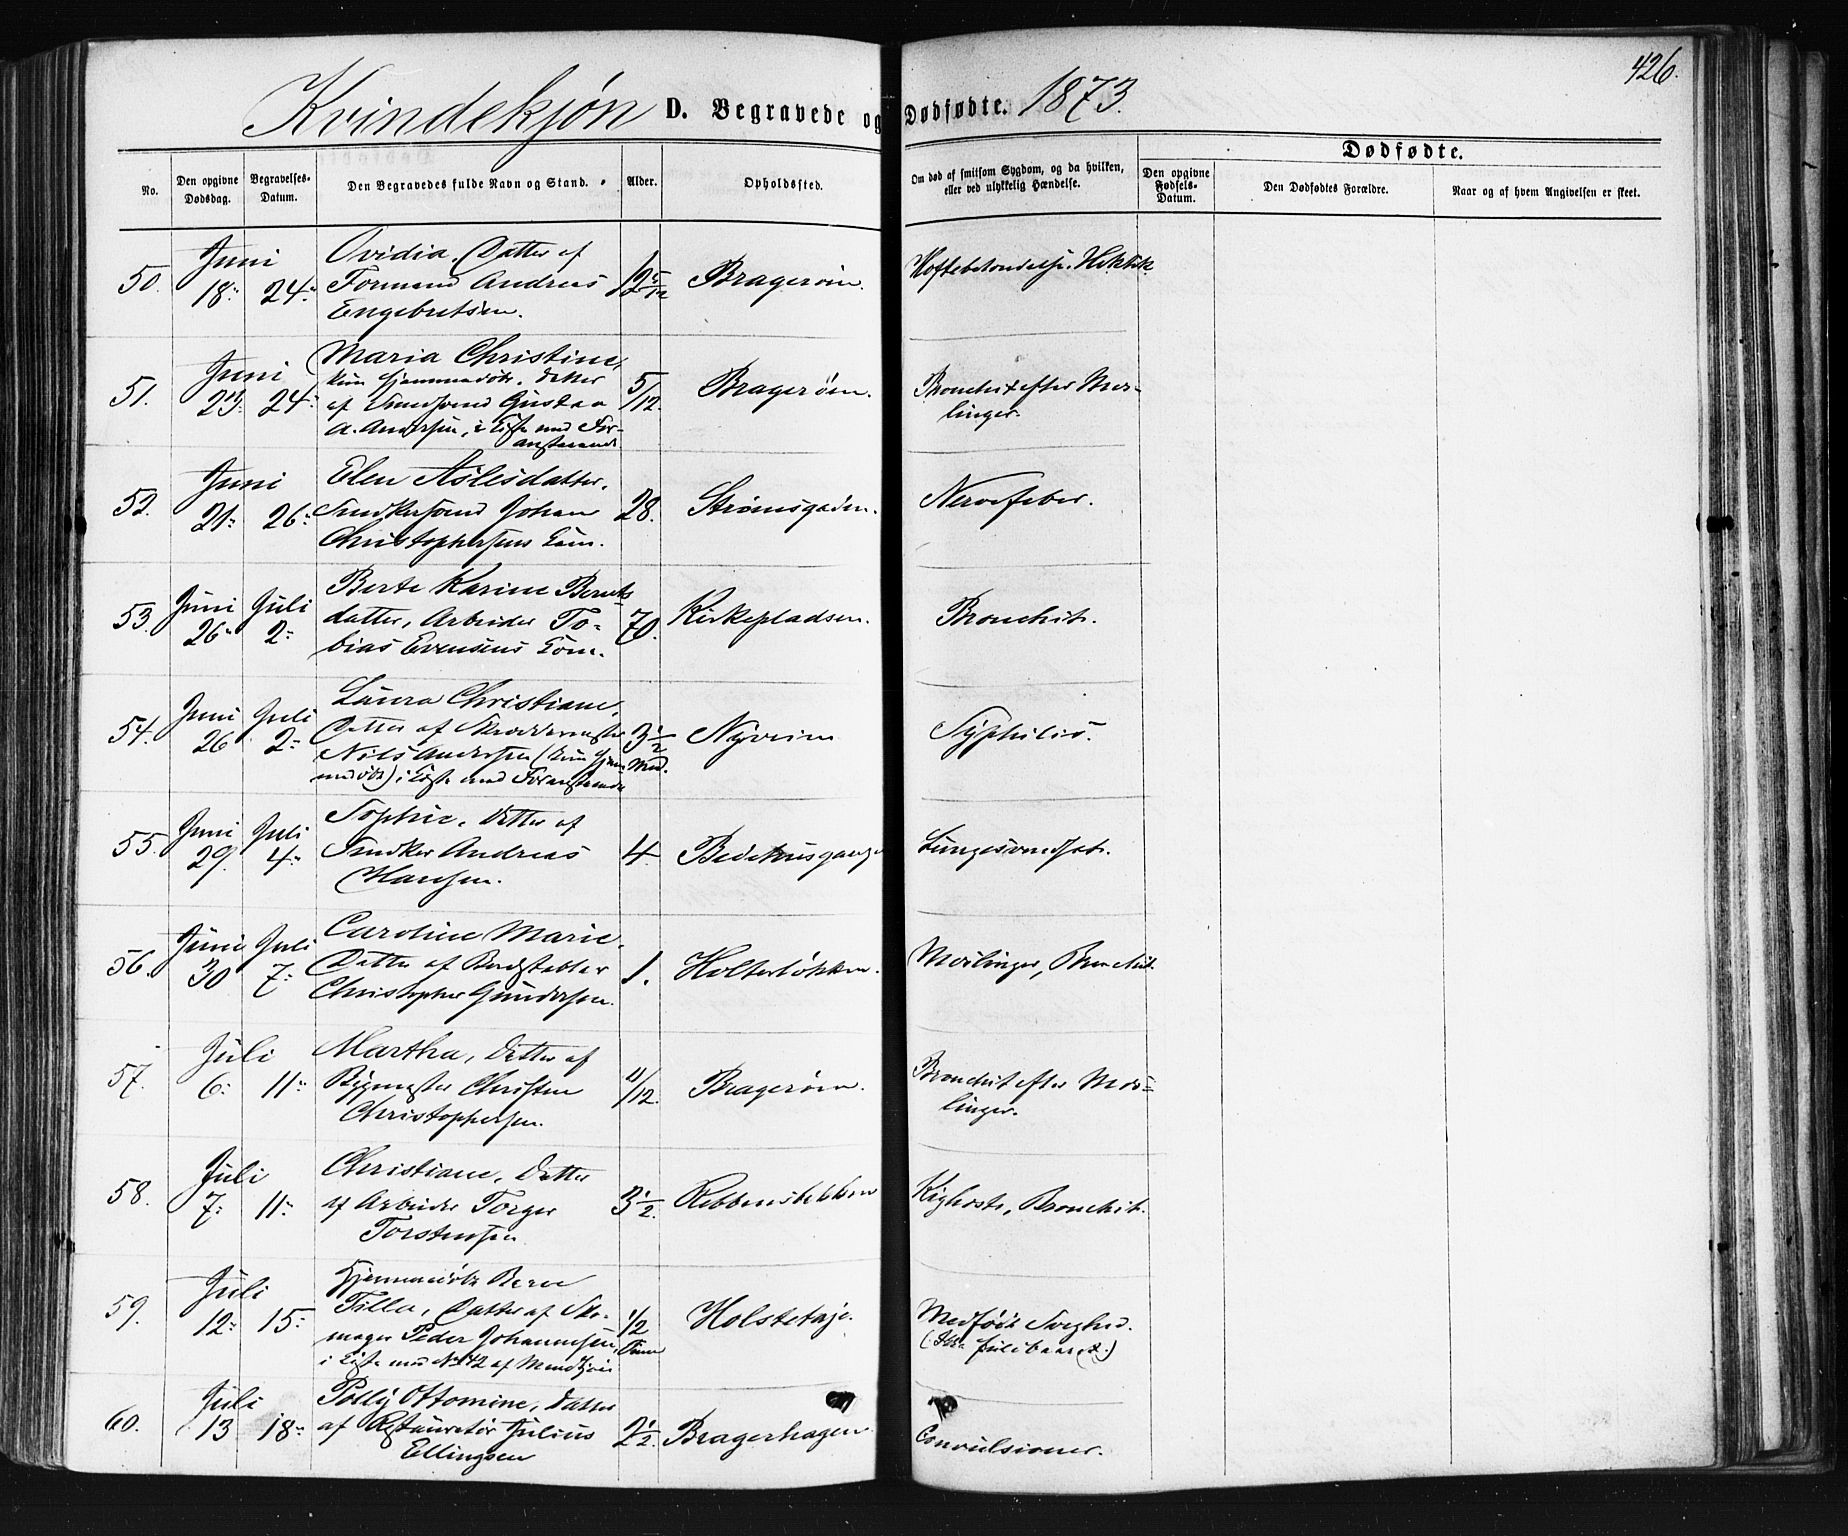 426.
Kvindekjøn D. Begravede og Dødfødte. 1873.
No.
Den opgivne Dødsdag.
Begravelses-Datum.
Den Begravedes fulde Navn og Stand.
Alder.
Opholdssted.
Om død af smitsom Sygdom, og da hvilken,
eller ved ulykkelig Hændelse.
Dødfødte.
Den opgivne Fødsels-Datum.
Den Dødfødtes Forældre.
Naar og af hvem Angivelsen er skeet.
50. Juni 18. 24. Ovidia, Datter af
Formand Andreas
Engebretsen.
12 5/12 Bragerøen. Hoftebetændelse. Hektik
51. Juni 23. 24. Maria Christine,
kun hjemmedøbt. Datter
af Gustav
A. Andersen, i Kiste med For-
anstaaende
5/12. Bragerøen. Bronchit efter Mes-
linger.
52. Juni 21. 26. Elen Aslesdatter,
Snedkersvend Johan
Christophersens Kone.
28. Strømsgaden. Nervefeber.
53. Juni 26. Juli 2. Berte Karine Bernts
datter, Arbeider To-
bias Evensens Kone.
70. Kirkepladsen. Bronchit.
54. Juni 26 Juli 2. Laura Christiane,
Datter af Skræddermester
Nils Andersen (kun hjem
medøbt) i Kiste med Foranstaaende
3 1/2 Md. Nyveien Syphilis.
55. Juni 29. Juli 4. Sophie, Datter af
Snedker Andreas
Hansen.
4. Bedehusgangen Lungesvindsot.
56. Juni 30 Juli 7. Caroline Marie,
Datter af Bordstabler
Christopher Gundersen.
1. Holterløkken. Meslinger, Bronchit.
57. Juli 6. 11. Martha, Datter af
Bygmester Christen
Christophersen.
11/12. Bragerøen. Bronchit efter Mes-
linger.
58. Juli 7. 11. Christiane, Datter
af Arbeider Torger
Torstensen
3 1/2. Kighoste, Bronchit.
59. Juli 12. 15. Hjemmedøbt Barn
Tilla, Datter af Sko-
mager Peder Johannesen,
i Kiste med No 42 af Mandkjøn
1/2 Time Medfødt Svaghed.
60. Juli 13 18. Polly Ottomine, Datter
af Restauratør Julius
Ellingsen
2 1/2. Bragerhagen Convulsioner.